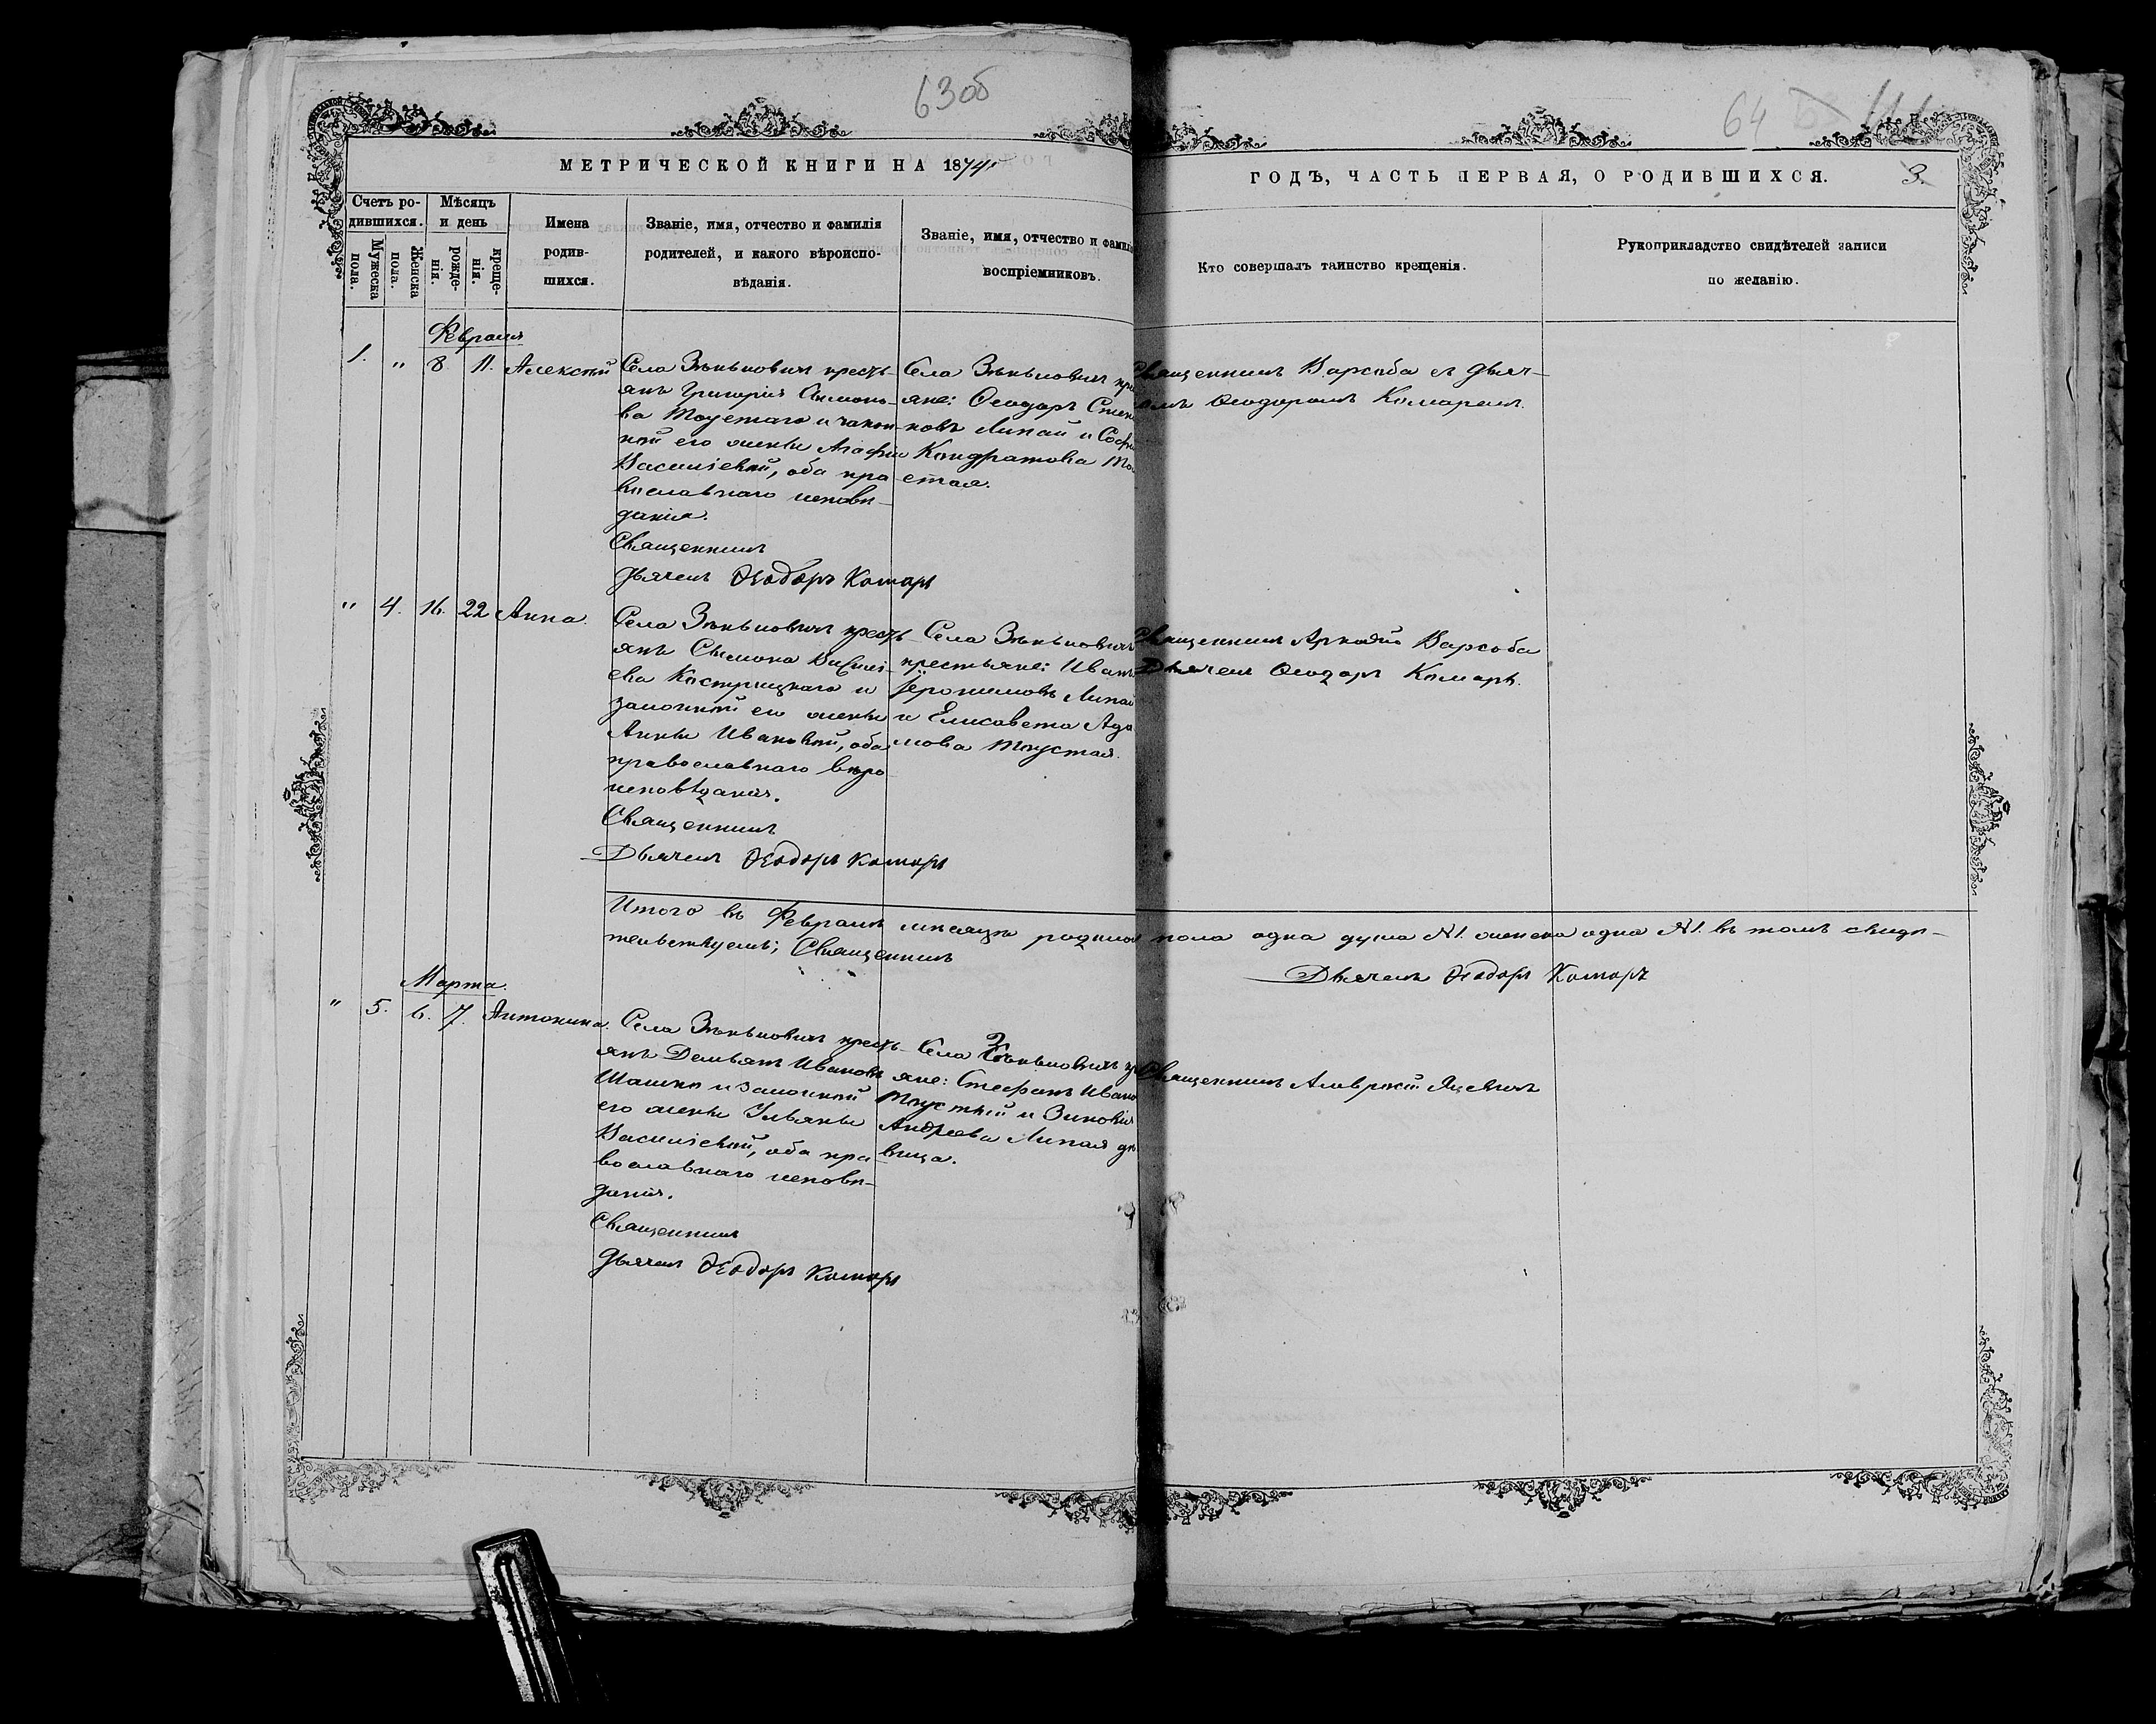 63об
64
МЕТРИЧЕСКОЙ КНИГИ НА 1874
ГОДѢ, ЧАСТЬ ПЕРВАЯ, О РОДИВШИХСЯ.
3.
Счетъ ро-
дившихся.
Мужеска
пола.
Женска
пола.
Мѣсяцъ
и день
рожде-
нія.
креще-
нія.
Имена
родив-
шихся.
Званіе, имя, отчество и фамилія
родителей, и какого вѣроиспо-
вѣданія.
Званіе, имя, отчество и фамилі
воспріемниковъ.
Кто совершалъ таинство крещенія.
Рукоприкладство свидѣтелей записи
по желанію.
Февраля
1. " 8 11. Алексѣй
Села Зѣньковичъ кресть-
янъ Григорія Симоно-
ва Тоустаго и закон-
ной его жены Агафіи
Василіевой, оба пра-
вославнаго исповѣ-
данія.
Священникъ
Дьячекъ Ѳеодоръ Комаръ
Села Зѣньковичъ кре
яне: Ѳеодоръ Степа
новъ Липай и Софія
Кондратова То
стая.
Священникъ Варсоба съ дьяч-
комъ Ѳеодоромъ Комаремъ.
" 4. 16. 22 Анна.
Села Зѣньковичъ кресть
янъ Симона Василі-
ева Кострицкаго и
законной его жены
Анны Ивановой, оба
православнаго вѣро-
исповѣданія.
Священникъ
Дьячекъ Ѳеодоръ Комаръ
Села Зѣньковичъ
крестьяне: Иванъ
Іеронимовъ Липай
и Елисавета Ада
мова Тоустая.
Священникъ Аркадій Варсоба
Дьячекъ Ѳеодоръ Комаръ.
Итого въ Февралѣ мѣсяцѣ родилось пола одна душа №1. женска одна №1. въ томъ свидѣ-
тельствуемъ; Священникъ
Дьячекъ Ѳеодоръ Комаръ
Марта.
" 5. 6. 7. Антонина.
Села Зѣньковичъ кресть-
янъ Демьянъ Ивановъ
Шашко и законной
его жены Ульяны
Василіевой, оба пра-
вославнаго исповѣ-
данія.
Священникъ
Дьячекъ Ѳеодоръ Комаръ
Села Зѣньковичъ кр
яне: Стефанъ Ивано
Тоустый и Зиновія
Андреева Липая дѣ
вица.
Священникъ Амвросій Яцевичъ